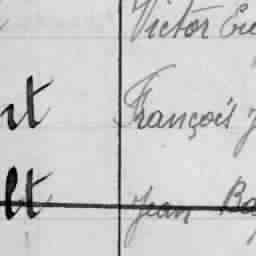 Victor Eu
nt François J
lt Jean Ba